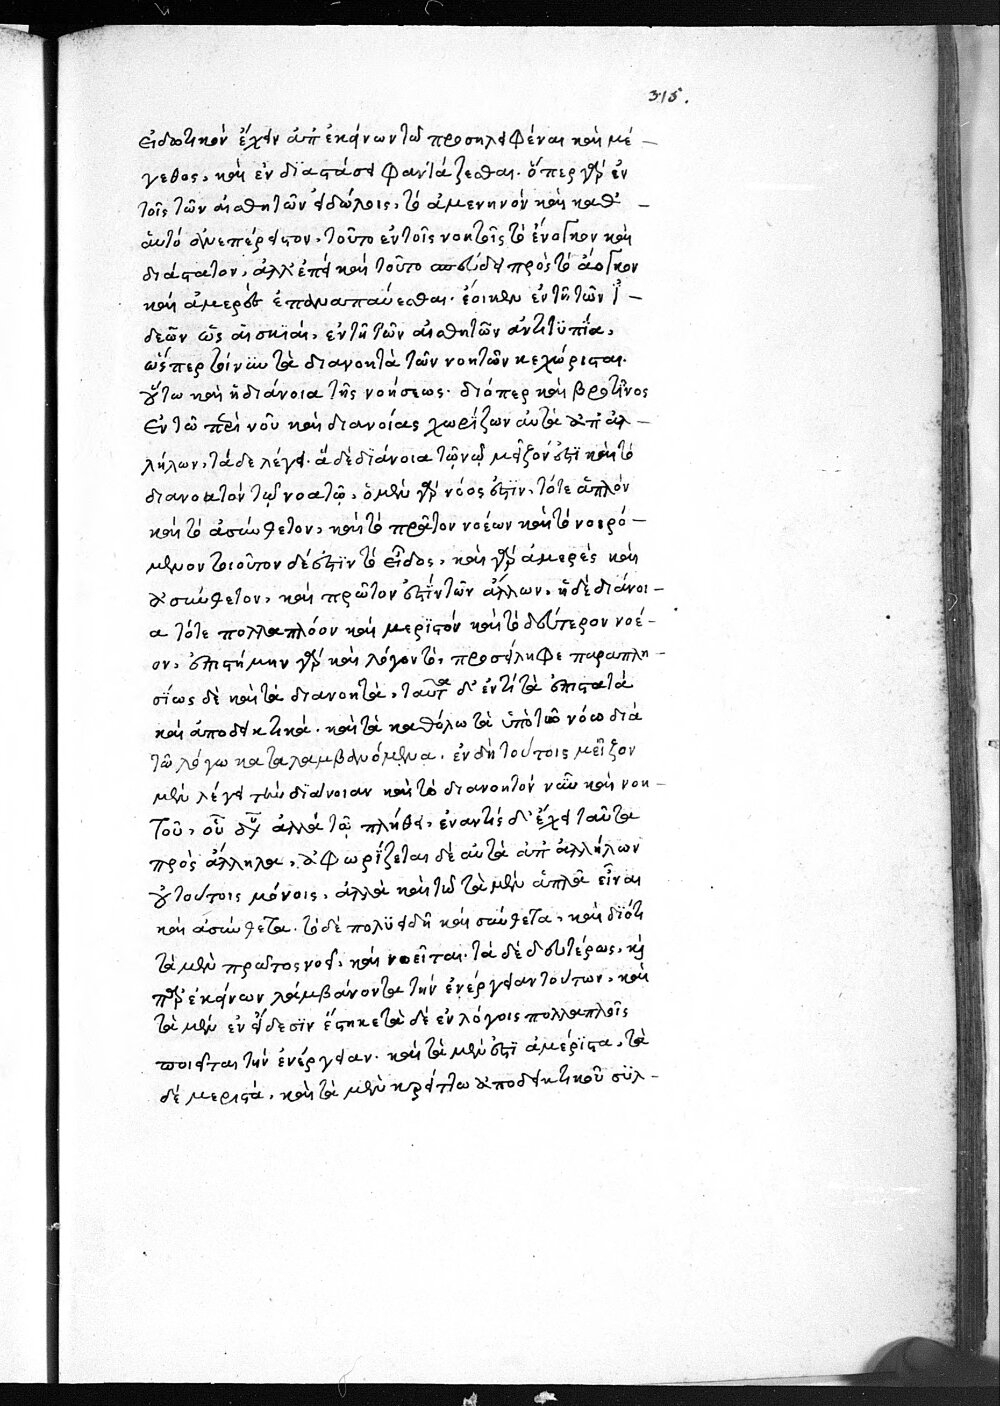 315.
εἰδωτικὸν ἔχειν ἀπ' ἐκείνων τῶ προσειληφέναι καὶ μέ-
γεθος, καὶ ἐν διαστάσει φαντάζεσθαι. ὅπερ γὰρ ἐν
τοῖς τῶν αἰσθητῶν εἰδώλοις, τὸ ἀμενηνὸν καὶ καθ' -
αὑτὸ ἀνεπέρειστον, τοῦτο ἐν τοῖς νοητοῖς τὸ ἔνογκον καὶ
διάστατον, ἀλλ' ἐπεὶ καὶ τοῦτο σπεύδει πρὸς τὸ ἄογκον
καὶ ἀμερὲς ἐπαναπαύεσθαι. ἔοικεν ἐν τῆ τῶν ἰ-
δεῶν ὡς αἱ σκιαὶ, ἐν τῆ τῶν αἰσθητῶν ἀντιτυπία,
ὥσπερ τοίνυν τὰ διανοητὰ τῶν νοητῶν κεχώρισται.
οὕτω καὶ ἡ διάνοια τῆς νοήσεως. διόπερ καὶ βροτῖνος
ἐν τῶ περὶ νοῦ καὶ διανοίας χωρίζων αὐτὰ ἀπ' ἀλ-
λήλων, τάδε λέγει. ἁ δὲ διάνοια τῶ νῶ μεῖζόν ἐστι καὶ τὸ
διανοατὸν τῶ νοατῶ, ὁ μὲν γὰρ νόος ἐστὶν, τότε ἁπλόν
καὶ τὸ ἀσύνθετον, καὶ τὸ πρᾶτον νοέων καὶ τὸ νοερό-
μενον τοιοῦτον δέ ἐστιν τὸ εἶδος, καὶ γὰρ ἀμερὲς καὶ
ἀσύνθετον, καὶ πρῶτον ἐστὶν τῶν ἄλλων, ἡ δὲ διάνοι-
α τότε πολλαπλόον καὶ μεριστόν καὶ τὸ δεύτερον νοέ-
ον, ἐπιστήμην γὰρ καὶ λόγον τὸ, προσείληφε παραπλη-
σίως δὲ καὶ τὰ διανοητὰ, ταῦτα δ' ἐντὶ τὰ ἐπιστατά
καὶ ἀποδεικτικά. καὶ τὰ καθόλω τὰ ὑπὸ τῶ νόω διά
τῶ λόγω καταλαμβανόμενα. ἐν δὴ τούτοις μεῖζον
μὲν λέγει τὴν διάνοιαν καὶ τὸ διανοητόν ναῦ καὶ νοη-
τοῦ, οὐ δυ ἀλλὰ τῶ πλήθει, ἐναντίως δ' ἔχει ταῦτα
πρὸς ἄλληλα, ἀφωρίζεται δὲ αὐτὰ ἀπ' ἀλλήλων
οὐ τούτοις μόνοις, ἀλλὰ καὶ τῶ τὰ μὲν ἁπλᾶ εἶναι
καὶ ἀσύνθετα. τὸ δὲ πολυειδῆ καὶ σύνθετα, καὶ διότι
τὰ μὲν πρώτος νοεῖ, καὶ νοεῖται. τὰ δὲ δευτέρως, καὶ
παρ' ἐκείνων λαμβάνοντα τὴν ἐνέργειαν τούτων, καὶ
τὰ μὲν ἐν εἴδεσιν ἕστηκε τὰ δὲ ἐν λόγοις πολλαπλοῖς
ποιεῖται τὴν ἐνέργειαν. καὶ τὰ μὲν ἐστὶ ἀμέριστα, τὰ
δέ μεριστά, καὶ τὰ μὲν κρείττω ἀποδεικτικοῦ συλ-